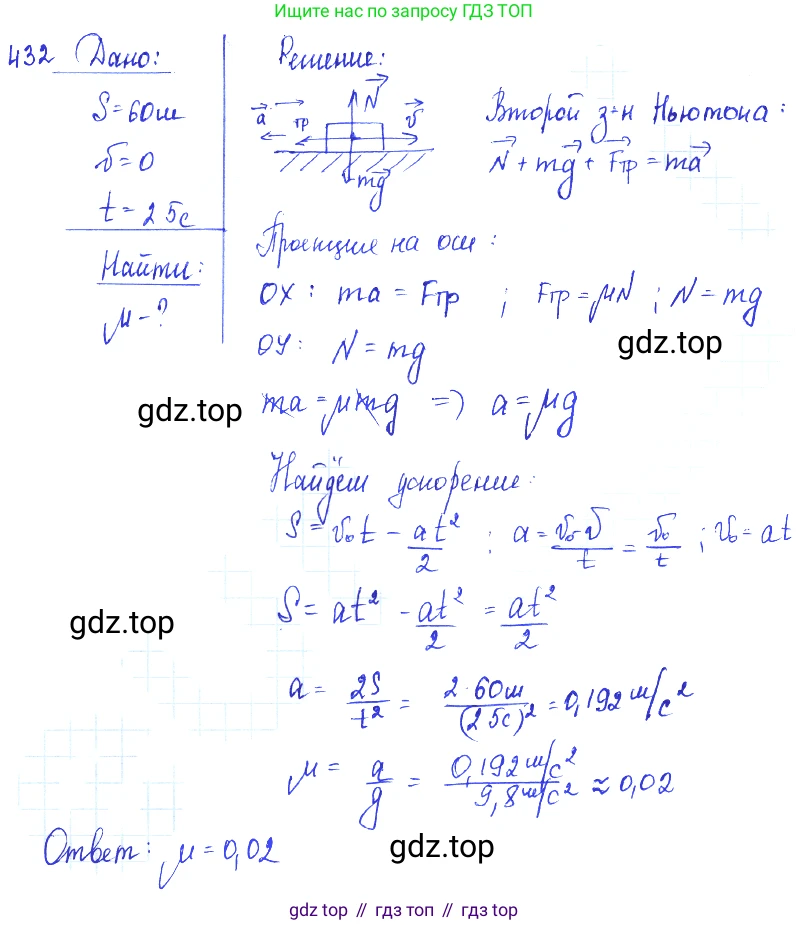 Ищите нас по запросу ГДЗ ТОП
432 Дано: Решение:
S=60м
v=0
t=25с
Найти:
μ-?
a тр N v
mg
Второй з-н Ньютона:
N + mg + Fтр = ma
Проекции на оси:
OX: ma = Fтр ; Fтр = μN ; N = mg
OY: N = mg
gdz.top
gdz.top
ma = μmg => a = μg
Найдём ускорение:
S = v₀t - at²/2 ; a = v₀-v/t = v₀/t ; v₀ = at
S = at² - at²/2 = at²/2
gdz.top
a = 2S/t² = 2·60м/(25с)² = 0,192 м/с²
μ = a/g = 0,192 м/с²/9,8 м/с² ≈ 0,02
Ответ: μ = 0,02
gdz.top
gdz top // гдз топ // gdz top